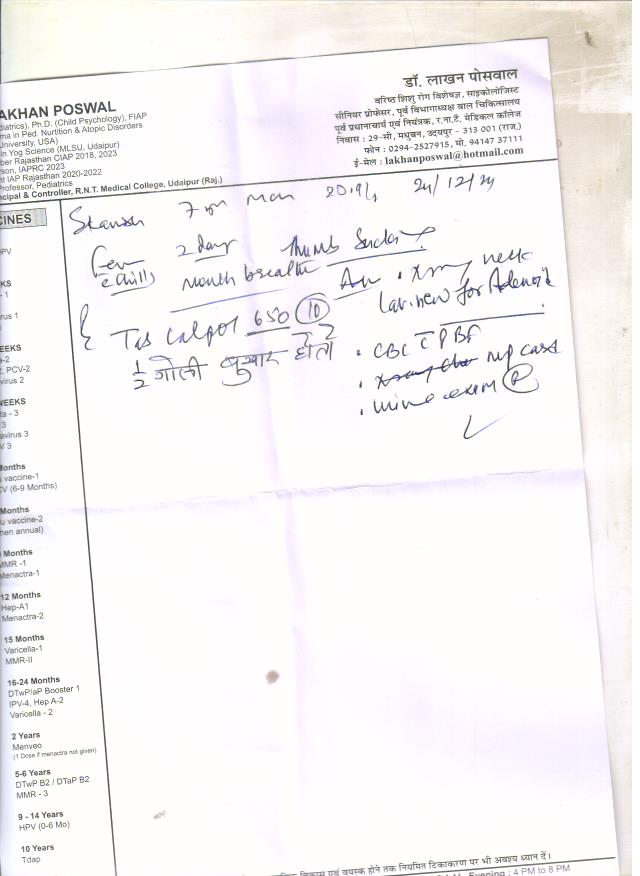 AKHAN POSWAL
diatrics), Ph.D. (Child Psychology), FIAP
ma in Ped. Nurtition & Atopic Disorders
University, USA)
in Yog Science (MLSU, Udaipur)
ber Rajasthan CIAP 2018, 2023
rson, IAPRC 2023
nt IAP Rajasthan 2020-2022
Professor, Pediatrics
ncipal & Controller, R.N.T. Medical College, Udaipur (Raj.)
डॉ. लाखन पोसवाल
वरिष्ठ शिशु रोग विशेषज्ञ, साइकोलोजिस्ट
सीनियर प्रोफेसर, पूर्व विभागाध्यक्ष बाल चिकित्सालय
पूर्व प्रधानाचार्य एवं नियंत्रक, र.ना.टै. मेडिकल कॉलेज
निवास : 29-सी, मधुबन, उदयपुर - 313 001 (राज.)
फोन : 0294-2527915, मो. 94147 37111
ई-मेल : lakhanposwal@hotmail.com
7 20.9 24/12/24
2 day thumb
chills mouth
neck
for Adenoid
Tab Calpol 650 10
1/2 गोली बुखार हो तो
CBC PBF
urine exam
CINES
PV
KS
- 1
rus 1
EEKS
a-2
, PCV-2
virus 2
WEEKS
ta - 3
3
avirus 3
V 3
Months
u vaccine-1
CV (6-9 Months)
Months
u vaccine-2
hen annual)
Months
MMR -1
Menactra-1
12 Months
Hep-A1
Menactra-2
15 Months
Varicella-1
MMR-II
16-24 Months
DTwP/aP Booster 1
IPV-4, Hep A-2
Varicella - 2
2 Years
Menveo
(1 Dose if menactra not given)
5-6 Years
DTwP B2 / DTaP B2
MMR - 3
9 - 14 Years
HPV (0-6 Mo)
10 Years
Tdap
विकास एवं वयस्क होने तक नियमित टिकाकरण पर भी अवश्य ध्यान दें।
Evening : 4 PM to 8 PM